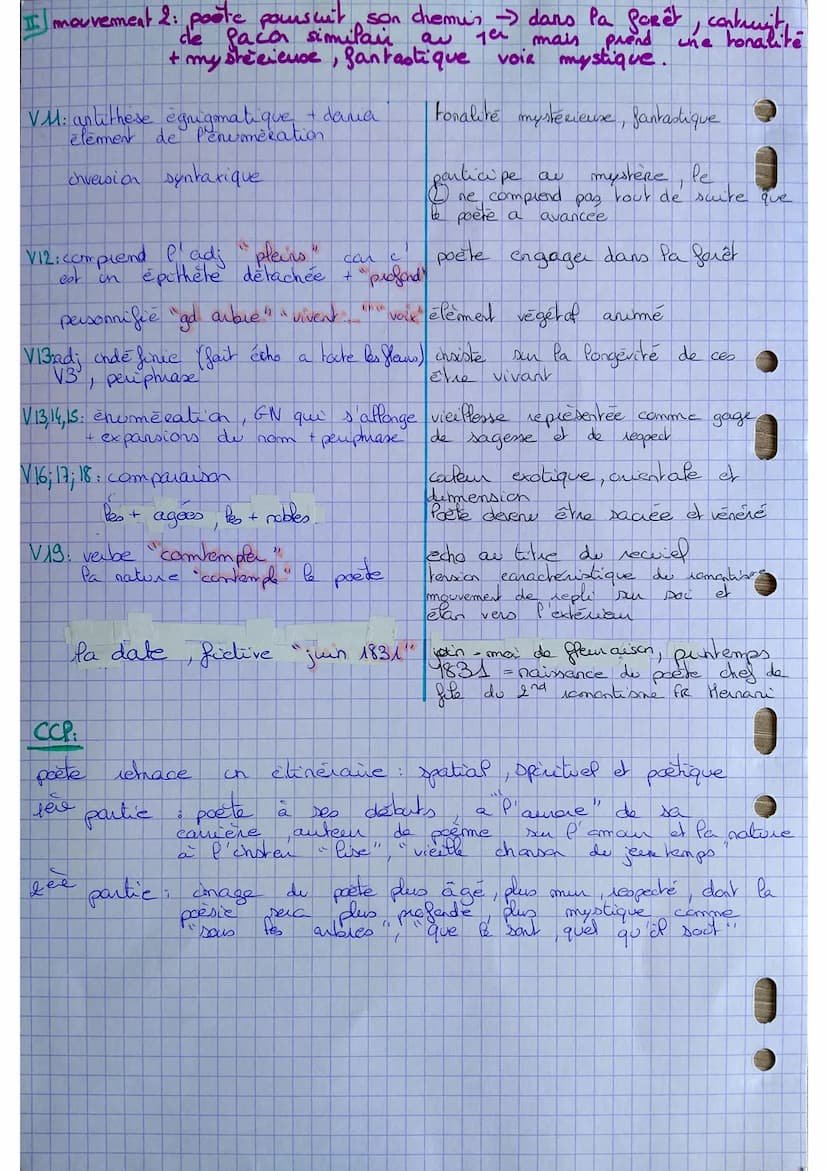 II) mouvement 2: poète poursuit son chemin → dans la forêt, contruit
de façon similair au 1er mais prend une tonalité
+ mystérieuse, fantastique voir mystique.
V11: antithèse égnigmatique + denier
élément de l'énumération
tonalité mystérieuse, fantastique
inversion syntaxique
participe au mystère, le
L ne comprend pas tout de suite que
le poète a avancée
V12: comprend l'adj "pleins" car c'
est un épithète détachée + "profond"
poète engager dans la forêt
personnifié "gd arbre" "vivent..." "voix"
élément végétal animé
V13: adj indéfinie (fait écho a toute les fleurs)
V3, périphrase
insiste sur la longévité de ces
être vivant
V13,14,15: énumération, GN qui s'allonge
+ expansions du nom + périphrase
vieillesse représentée comme gage
de sagesse et de respect
V16;17;18: comparaison
les + agées, les + nobles
couleur exotique, orientale et
dimmension
Poète devenu être sacrée et vénéré
V19: verbe "comtempler"
la nature "contempl" le poète
echo au titre du recueil
tension caractéristique du romantisme
mouvement de repli sur soi et
élan vers l'extérieur
la date, fictive "juin 1831"
juin = moi de fleuraison, printemps
1831 = naissance du poète chef de
file du 2nd romantisme FR Hernani
CCP:
poète retrace un itinéraire: spatial, spirituel et poétique
1ère partie: poète à ses débuts, a "l'aurore" de sa
carrière, auteur de poème sur l'amour et la nature
à l'instar "lise", "vieille chanson du jeune temps"
2èe partie: image du poète plus âgé, plus mur, respecté, dont la
poésie sera plus profonde, plus mystique comme
"sous les arbres", "que le sont, quel qu'il soit"